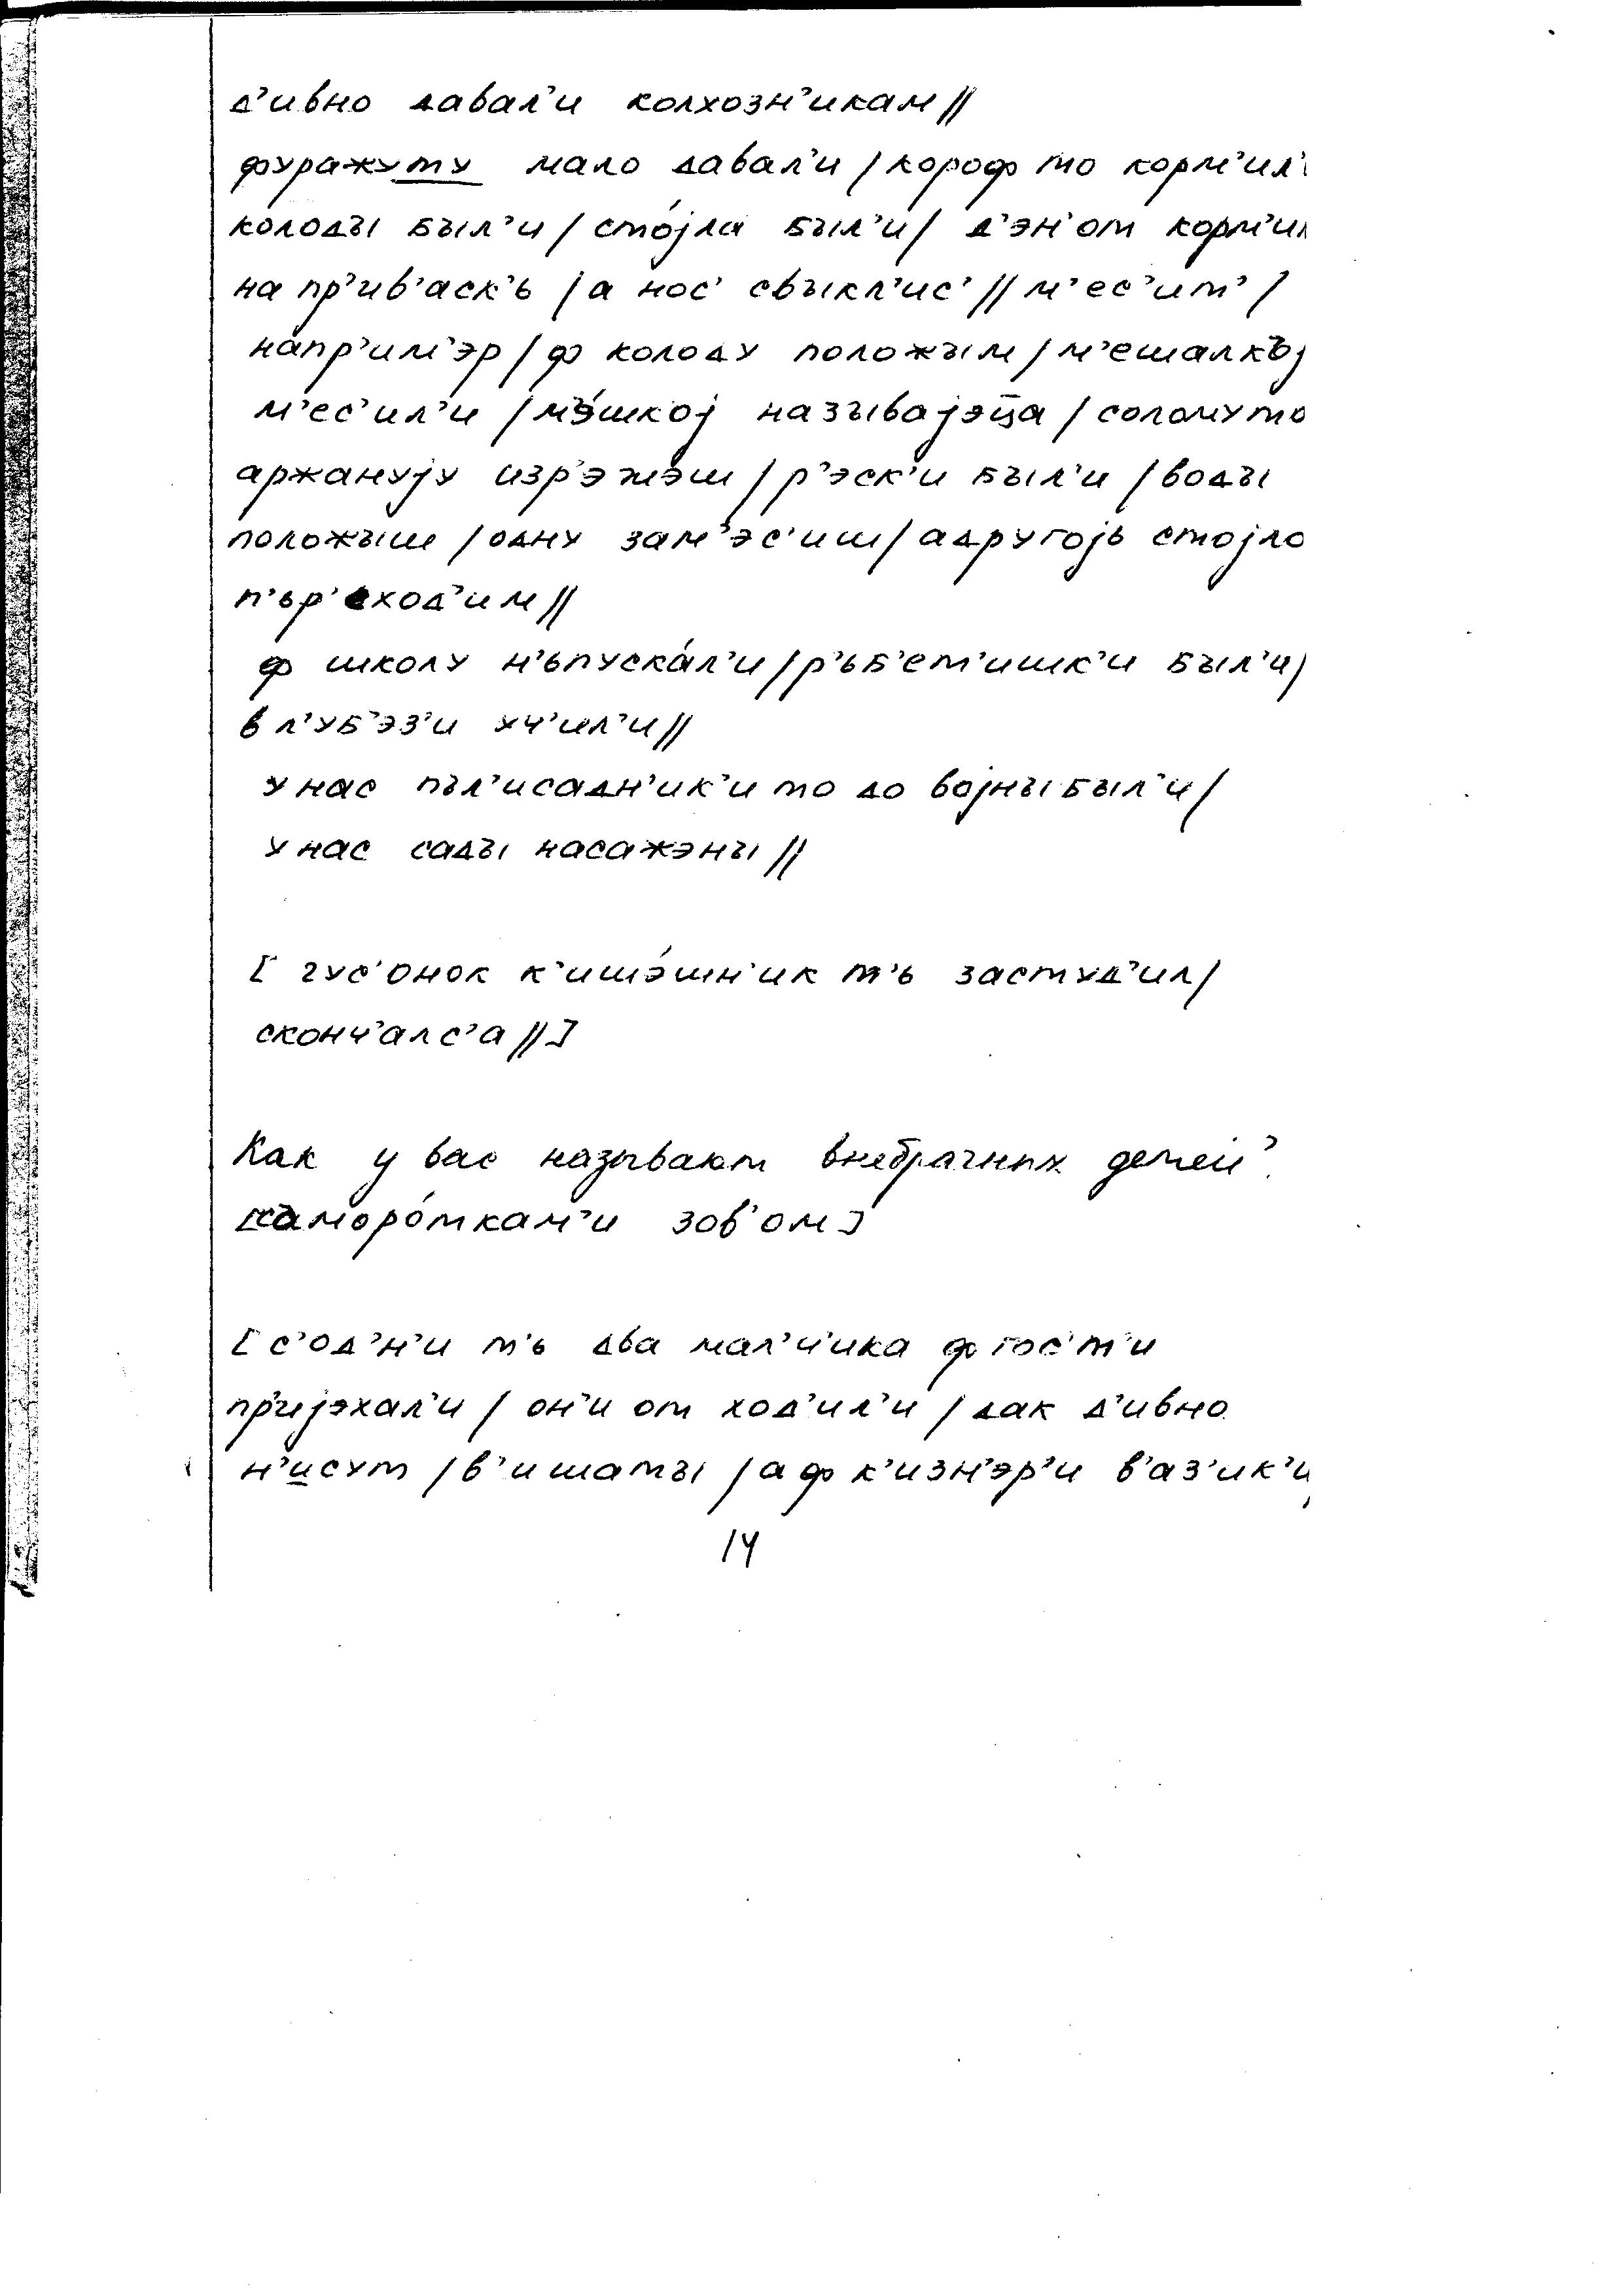 д'ивно давал'и колхозн'икам//
фуражуту мало давал'и /короф то корм'ил'
колоды был'и / сто́јла был'и / д'эн' от корм'ил
на пр'ив'аск'ь / а нос' свыкл'ис' // м'ес'ит' /
напр'им'эр / ф колоду положым / м'ешалкъј
м'ес'ил'и / мэ́шкој называјэца / соломуто
аржануjу изр'эжэш / р'эск'и был'и / воды
положыш / одну зам'эс'иш / адругоjь стоjло
п'ьр'еход'им //
ф школу н'ьпуска́л'и / р'ьб'ет'ишк'и был'и /
в л'уб'эз'и уч'ил'и //
у нас пъл'исадн'ик'и то до воjны был'и /
у нас сады насажэны //
[ гус'онок к'ишэ́шн'ик т'ь застуд'ил /
сконч'алс'а // ]
Как у вас называют внебрачных детей?
[саморо́ткам'и зов'ом]
[ с'од'н'и т'ь два мал'ч'ика ф гос'т'и
пр'иjэхал'и / он'и от ход'ил'и / дак д'ивно
н'исут / в'ишаты / а ф к'изн'эр'и в'аз'ик'и
14